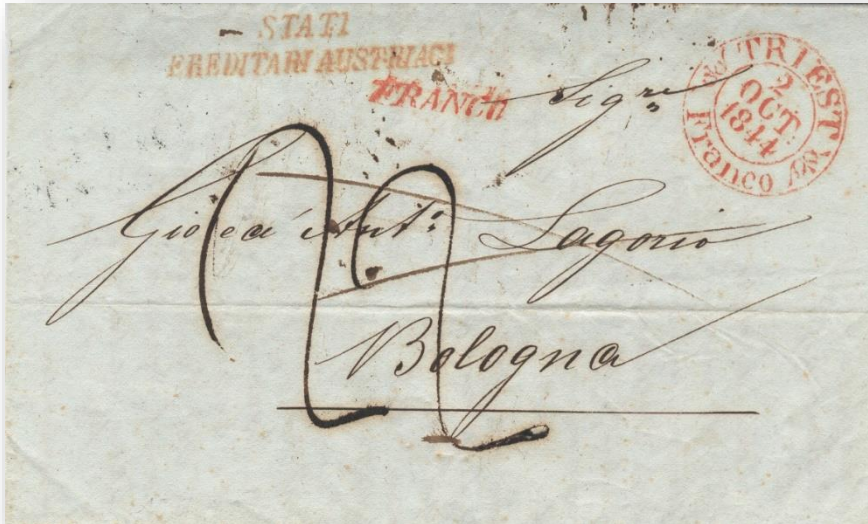 STATI
EREDITARI AUSTRIACI
FRANCO
TRIEST
2
OCT.
1844
Franco
Sigri
Antº Lagorio
Bologna